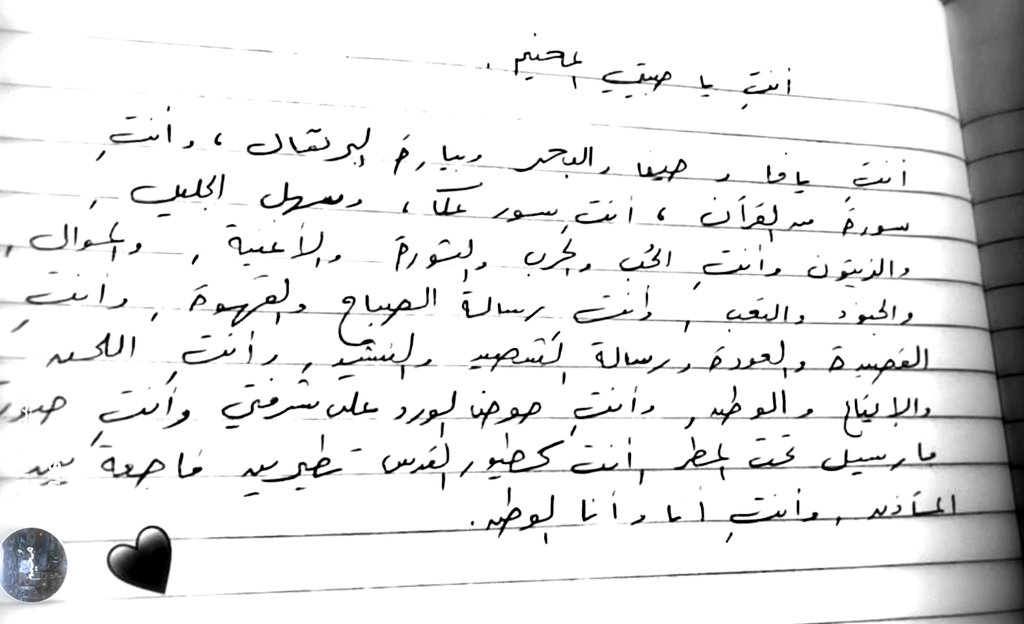 أنتِ يا حبيبتي المخيم .
أنتِ يافا و حيفا والبحر وبيارة البرتقال ، وأنتِ
سورة من القرآن ، أنتِ سور عكا ، وسهل الجليل ,
والزيتون وأنتِ الحُب والحرب والثورة والأغنية , والموال ,
والجنود والتعب , وأنت رسالة الصباح والقهوة , وأنتِ
القصيدة والعودة ورسالة الشهيد والنشيد , وأنتِ اللحن
والإيقاع والوطن , وأنتِ حوض الورد على شرفتي وأنتِ صوت
مارسيل تحت المطر , أنت كطيور القدس تطيرين بين
المآذن , وأنتِ أنا وأنا الوطن .